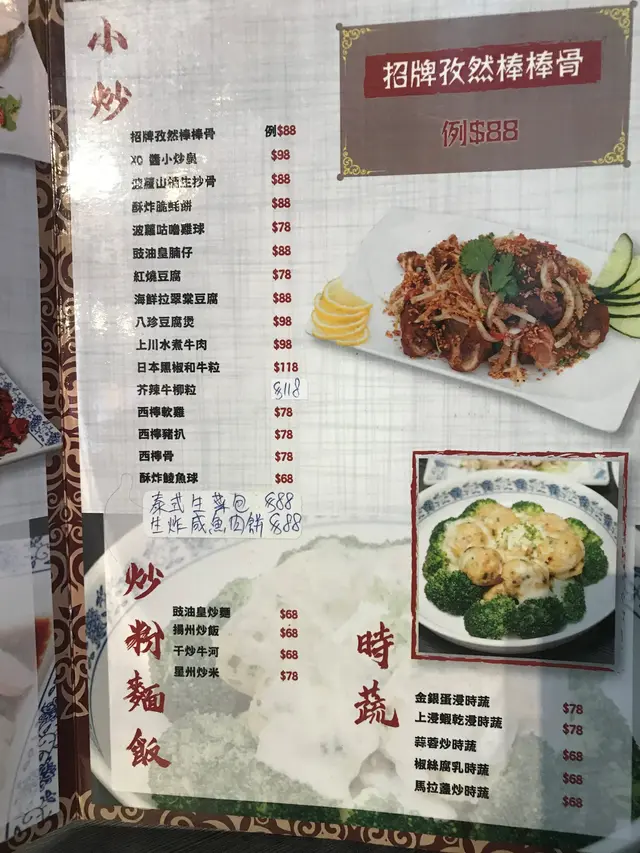 小炒
招牌孜然棒棒骨 例$88
XO 醬小炒皇 $98
$88
酥炸脆蚝餅 $88
波蘿咕嚕雞球 $78
豉油皇腩仔 $88
紅燒豆腐 $78
海鮮拉翠棠豆腐 $88
八珍豆腐煲 $98
上川水煮牛肉 $98
日本黑椒和牛粒 $118
芥辣牛柳粒 $118
西檸軟雞 $78
西檸豬扒 $78
西檸骨 $78
酥炸鯪魚球 $68
泰式生菜包 $88
生炸咸魚肉餅 $88
招牌孜然棒棒骨
例$88
炒粉麵飯
豉油皇炒麵 $68
揚州炒飯 $68
干炒牛河 $68
星州炒米 $78
時蔬
金銀蛋浸時蔬 $78
上浸蝦乾浸時蔬 $78
蒜蓉炒時蔬 $68
椒絲腐乳時蔬 $68
馬拉盞炒時蔬 $68